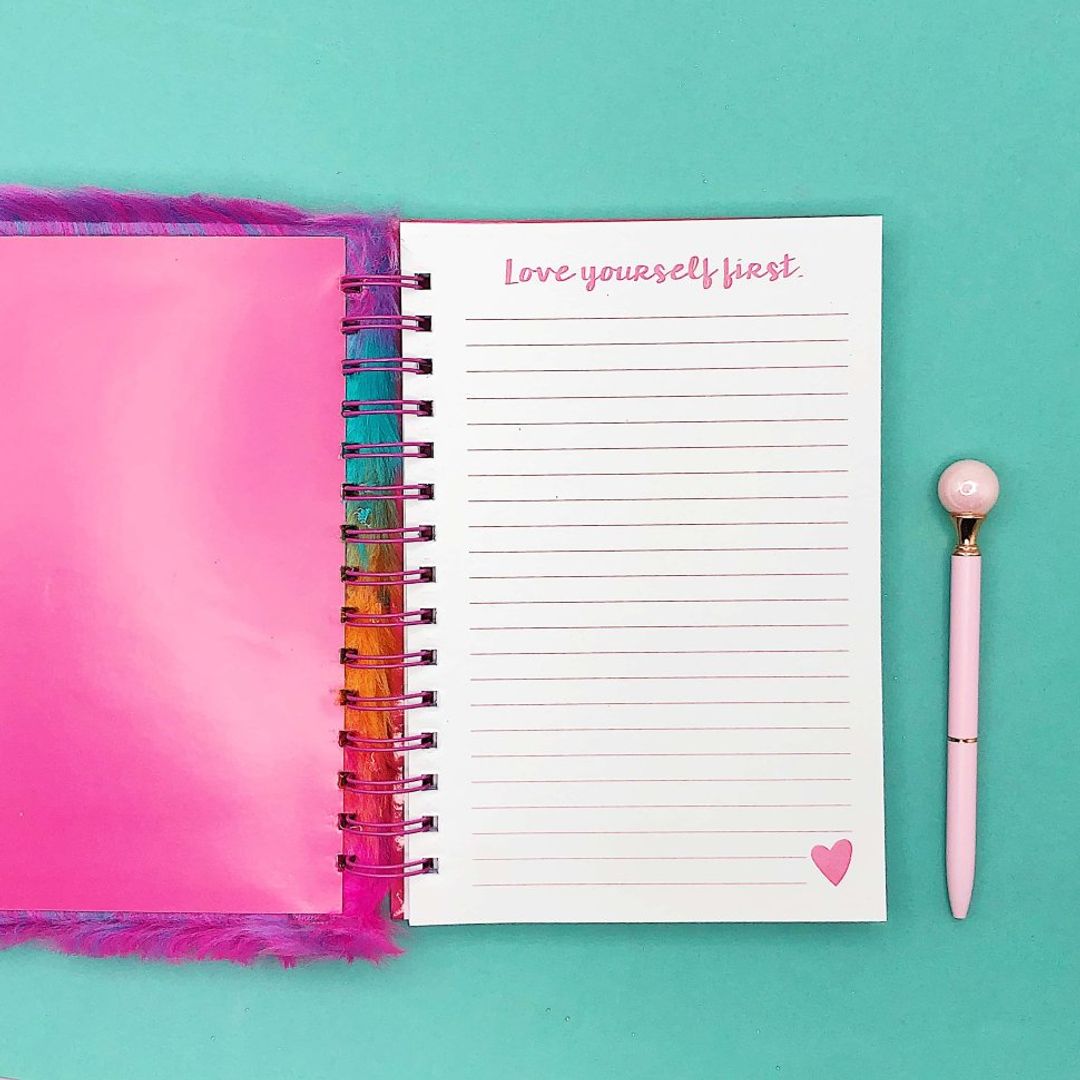 Love yourself first.